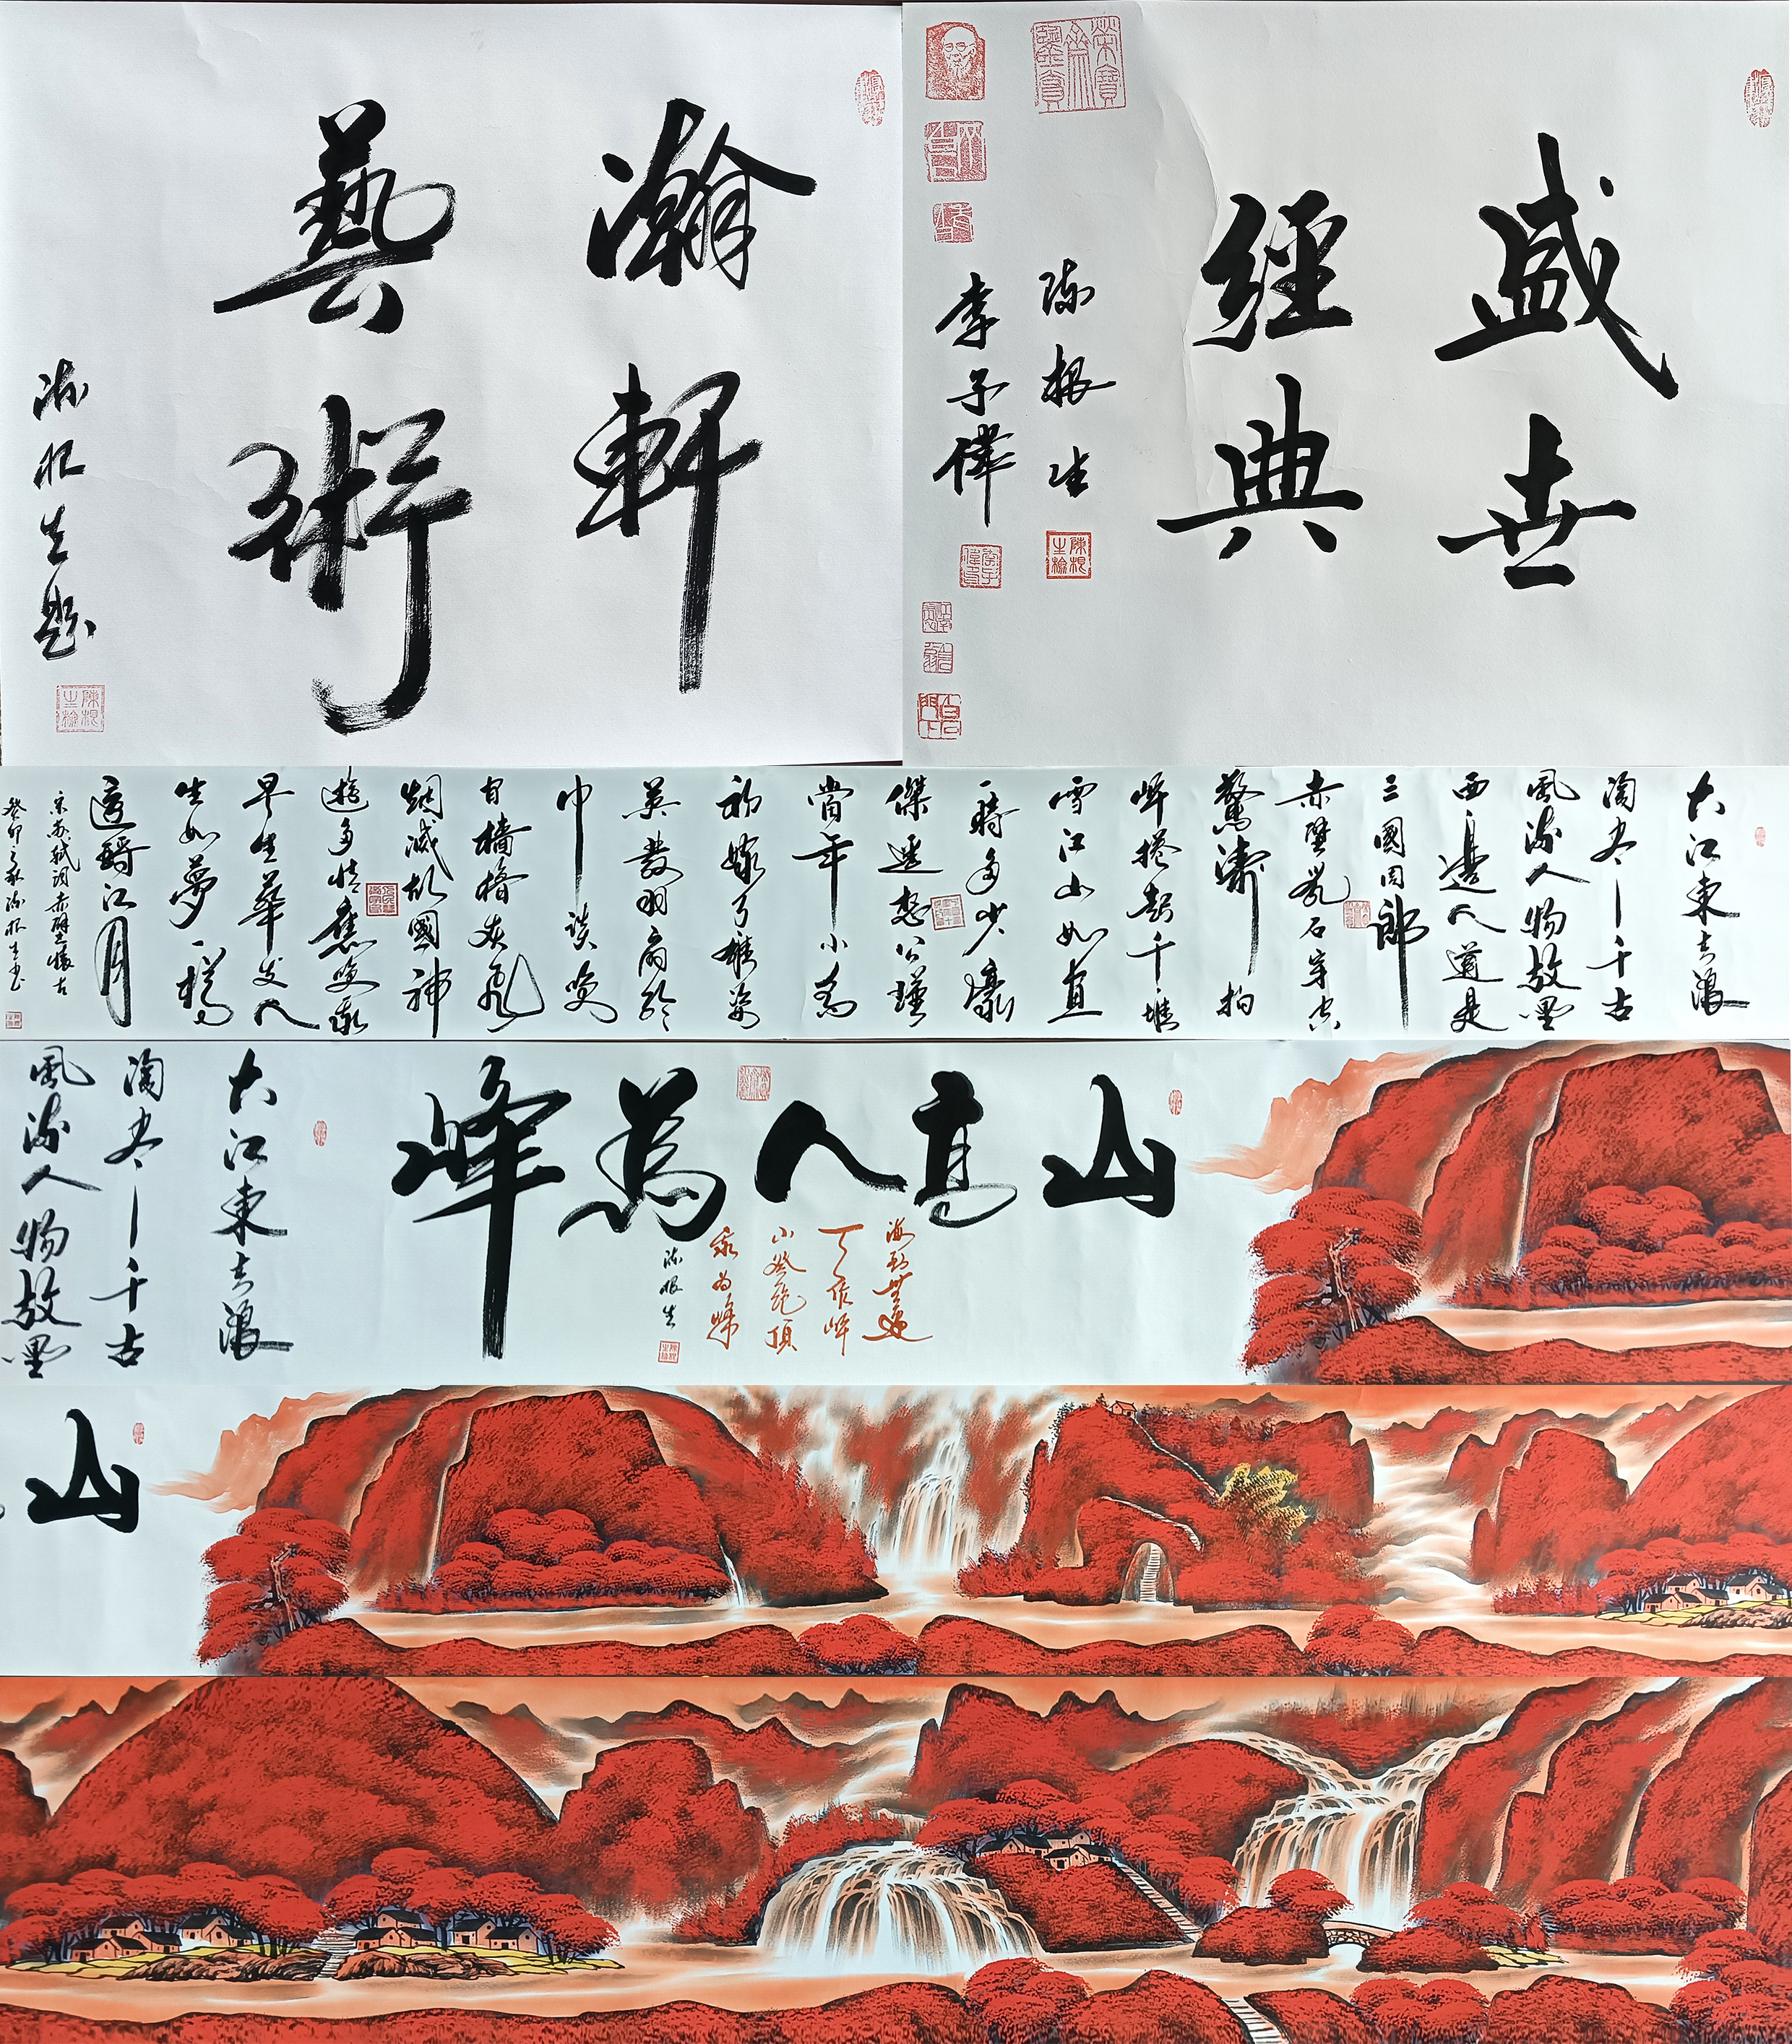 瀚軒
藝術
陈根生题
盛世
經典
陈根生
李子偉
白石門下
大江東去浪
淘尽千古
風流人物故壘
西邊人道是
三國周郎
赤壁乱石穿空
驚濤拍
岸捲起千堆
雪江山如画
一時多少豪
傑遥想公瑾
當年小喬
初嫁了雄姿
英發羽扇綸
巾談笑
间檣橹灰飛
烟滅故國神
遊多情應笑我
早生華发人
生如夢一樽
還酹江月
宋苏轼词赤壁懷古
癸卯之秋陈根生书
山高人為峰
海到無邊
天作岸
山登绝頂
我为峰
陈根生
大江東去浪
淘尽千古
風流人物故壘
山